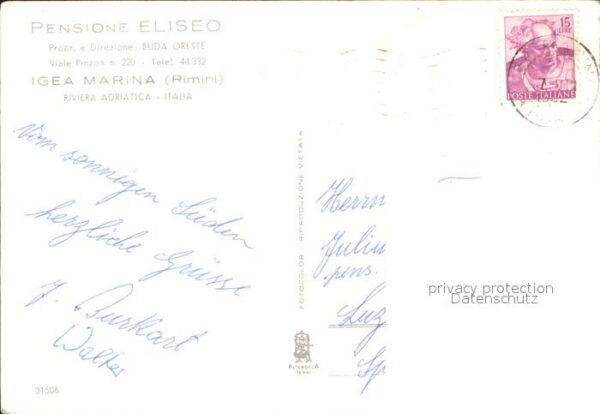 PENSIONE ELISEO
Propr. e Direzione: BUDA ORESTE
Viale Pinzon n. 220 - Telef. 44.332
IGEA MARINA (Rimini)
RIVIERA ADRIATICA - ITALIA
15
LIRE
POSTE ITALIANE
Vom sonnigen Süden
herzliche Grüsse
J. Burkart
Walter
FOTOCOLOR - RIPRODUZIONE VIETATA
Herrn
Juliu
pens.
Luz
Sp
privacy protection
Datenschutz
ALTEROCCA
TERNI
31506